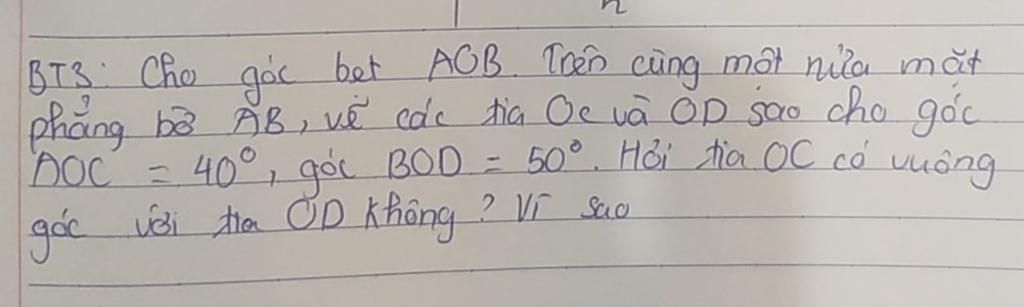 n
BT3: Cho góc bet AOB. Trên cùng một nửa mặt
phẳng bờ AB, vẽ các tia Oc và OD sao cho góc
AOC = 40°, góc BOD = 50°. Hỏi tia OC có vuông
góc với tia OD không? Vì sao